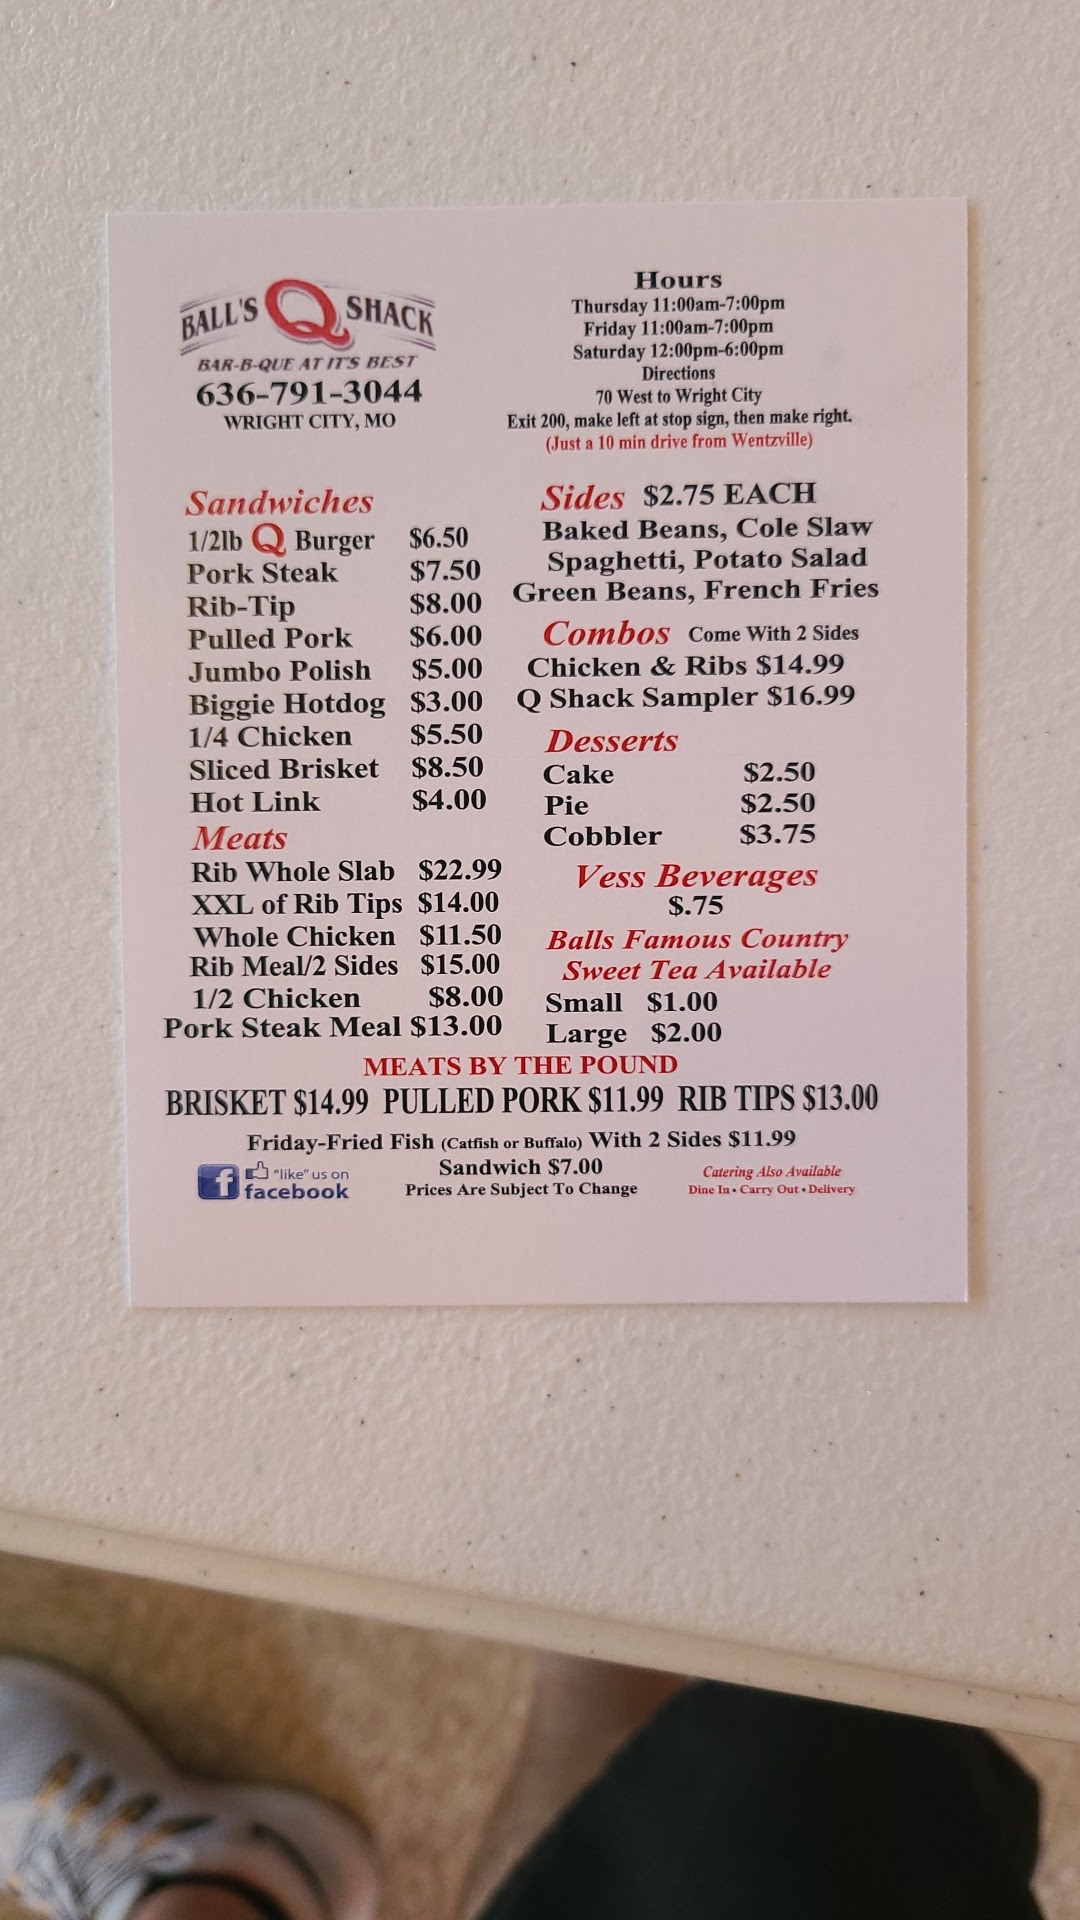 BALL'S Q SHACK
BAR-B-QUE AT IT'S BEST
636-791-3044
WRIGHT CITY, MO
Hours
Thursday 11:00am-7:00pm
Friday 11:00am-7:00pm
Saturday 12:00pm-6:00pm
Directions
70 West to Wright City
Exit 200, make left at stop sign, then make right.
(Just a 10 min drive from Wentzville)
Sandwiches
1/2lb Q Burger $6.50
Pork Steak $7.50
Rib-Tip $8.00
Pulled Pork $6.00
Jumbo Polish $5.00
Biggie Hotdog $3.00
1/4 Chicken $5.50
Sliced Brisket $8.50
Hot Link $4.00
Meats
Rib Whole Slab $22.99
XXL of Rib Tips $14.00
Whole Chicken $11.50
Rib Meal/2 Sides $15.00
1/2 Chicken $8.00
Pork Steak Meal $13.00
Sides $2.75 EACH
Baked Beans, Cole Slaw
Spaghetti, Potato Salad
Green Beans, French Fries
Combos Come With 2 Sides
Chicken & Ribs $14.99
Q Shack Sampler $16.99
Desserts
Cake $2.50
Pie $2.50
Cobbler $3.75
Vess Beverages
$.75
Balls Famous Country
Sweet Tea Available
Small $1.00
Large $2.00
MEATS BY THE POUND
BRISKET $14.99 PULLED PORK $11.99 RIB TIPS $13.00
Friday-Fried Fish (Catfish or Buffalo) With 2 Sides $11.99
Sandwich $7.00
Prices Are Subject To Change
f "like" us on
facebook
Catering Also Available
Dine In • Carry Out • Delivery